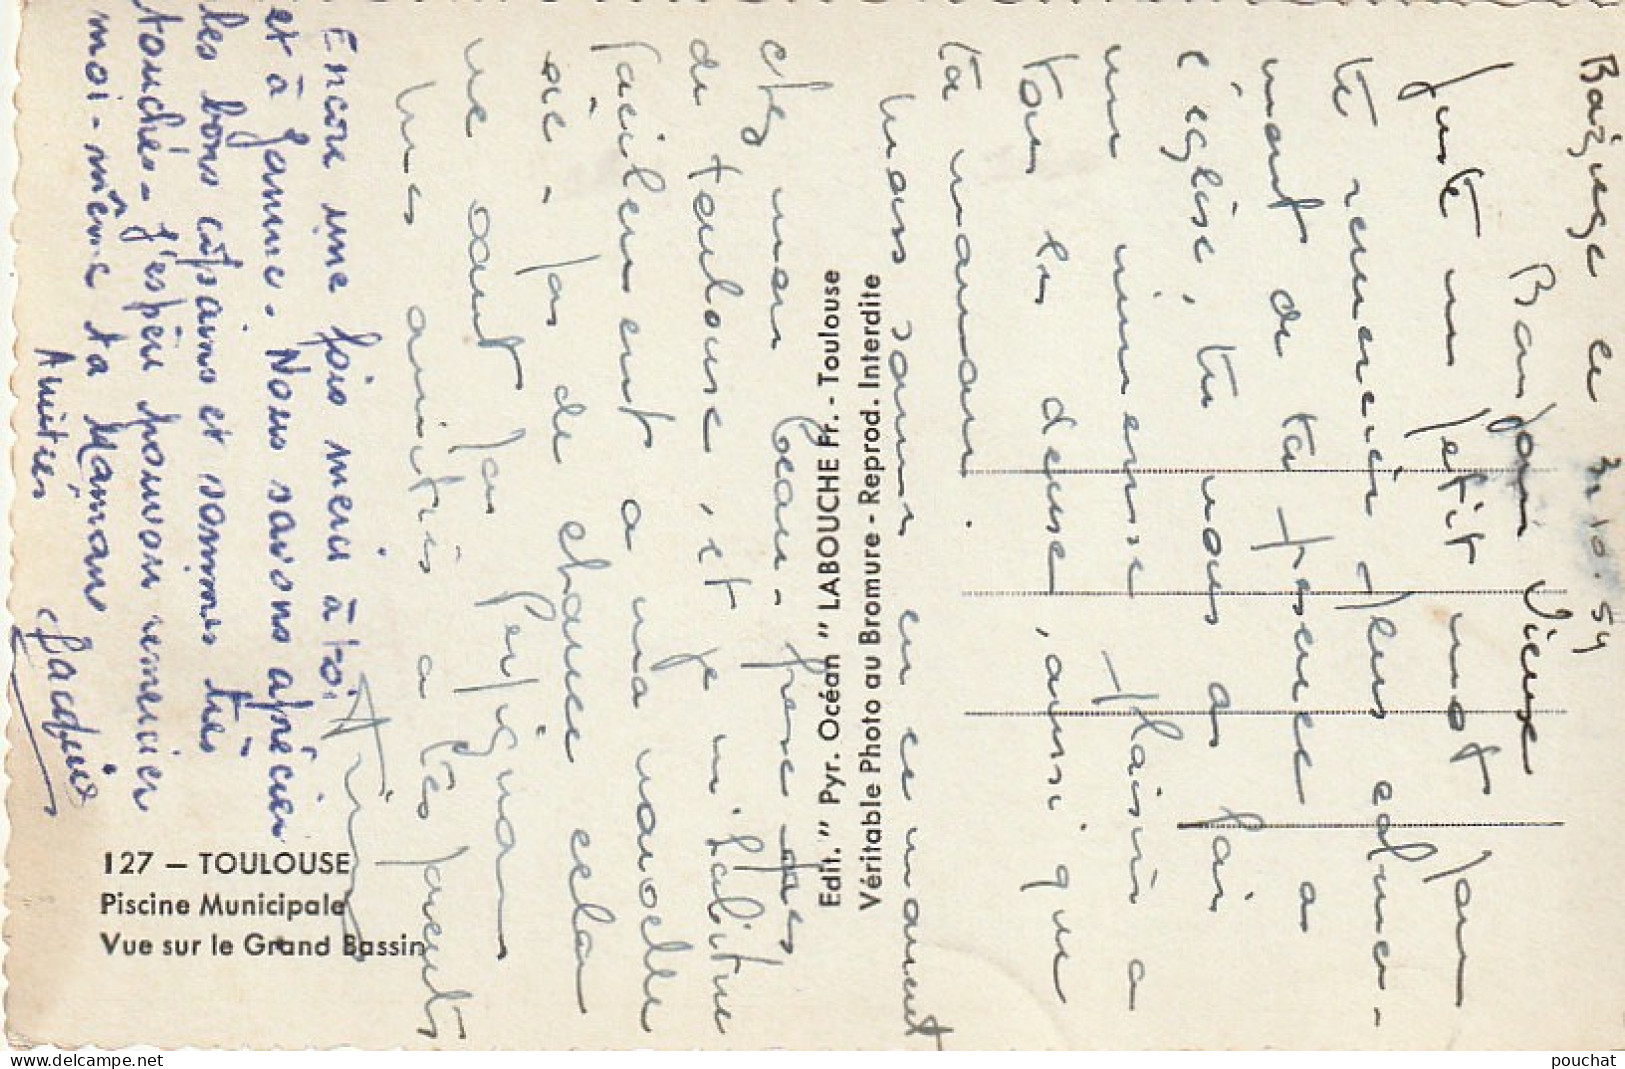 Baziège le 31.10.54
Bonjour Vieux
Juste un petit mot pour
te remercier plus calme-
ment de ta présence a
l'église, tu nous as fair
un immense plaisir a
tous les deux, ainsi que
ta maman.
Nous sommes en ce moment
chez mon beau-frere pres
de toulouse, et je m'habitue
facilement a ma nouvelle
vie. pas de chance cela
ne vaut pas Perpignan
Mes amitiés a tes parents
Encore une fois merci à toi
et à Jannine. Nous savons apprécier
les bons copains et sommes très
touchés. J'espère pouvoir remercier
moi-même ta Maman
Amitiés Jacqueline
127 — TOULOUSE
Piscine Municipale
Vue sur le Grand Bassin
Edit. " Pyr. Océan " LABOUCHE Fr. - Toulouse
Véritable Photo au Bromure - Reprod. Interdite
www.delcampe.net
pouchat